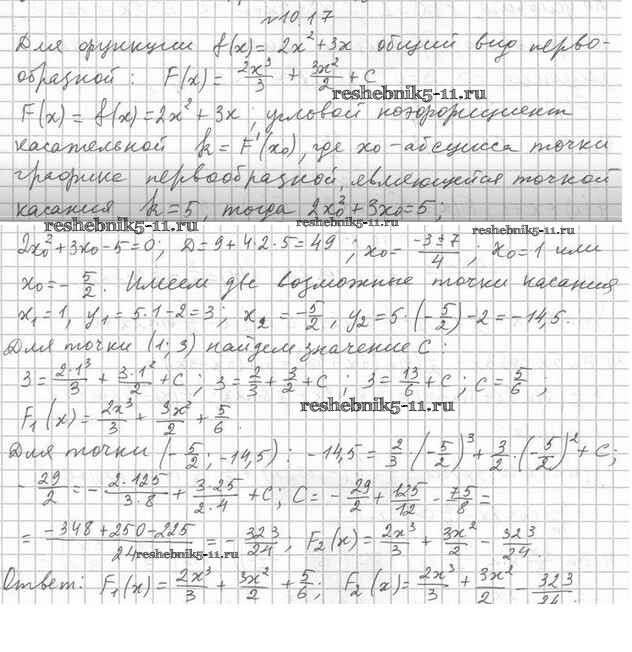 №10.17
Для функции f(x)=2x²+3x общий вид перво-
образной: F(x)=2x³/3+3x²/2+C
reshebnik5-11.ru
F'(x)=f(x)=2x²+3x, угловой коэффициент
касательной k=F'(x₀), где x₀-абсцисса точки
графика первообразной, являющейся точкой
касания k=5, тогда 2x₀²+3x₀=5;
reshebnik5-11.ru
2x₀²+3x₀-5=0; D=9+4·2·5=49; x₀=(-3±7)/4; x₀=1 или
x₀=-5/2. Имеем две возможные точки касания
x₁=1, y₁=5·1-2=3; x₂=-5/2, y₂=5·(-5/2)-2=-14,5.
Для точки (1;3) найдем значение C:
3=2·1³/3+3·1²/2+C; 3=2/3+3/2+C; 3=13/6+C; C=5/6,
reshebnik5-11.ru
F₁(x)=2x³/3+3x²/2+5/6.
Для точки (-5/2;-14,5): -14,5=2/3·(-5/2)³+3/2·(-5/2)²+C;
-29/2=-2·125/3·8+3·25/2·4+C; C=-29/2+125/12-75/8=
=(-348+250-225)/24=-323/24; F₂(x)=2x³/3+3x²/2-323/24.
reshebnik5-11.ru
Ответ: F₁(x)=2x³/3+3x²/2+5/6; F₂(x)=2x³/3+3x²/2-323/24.